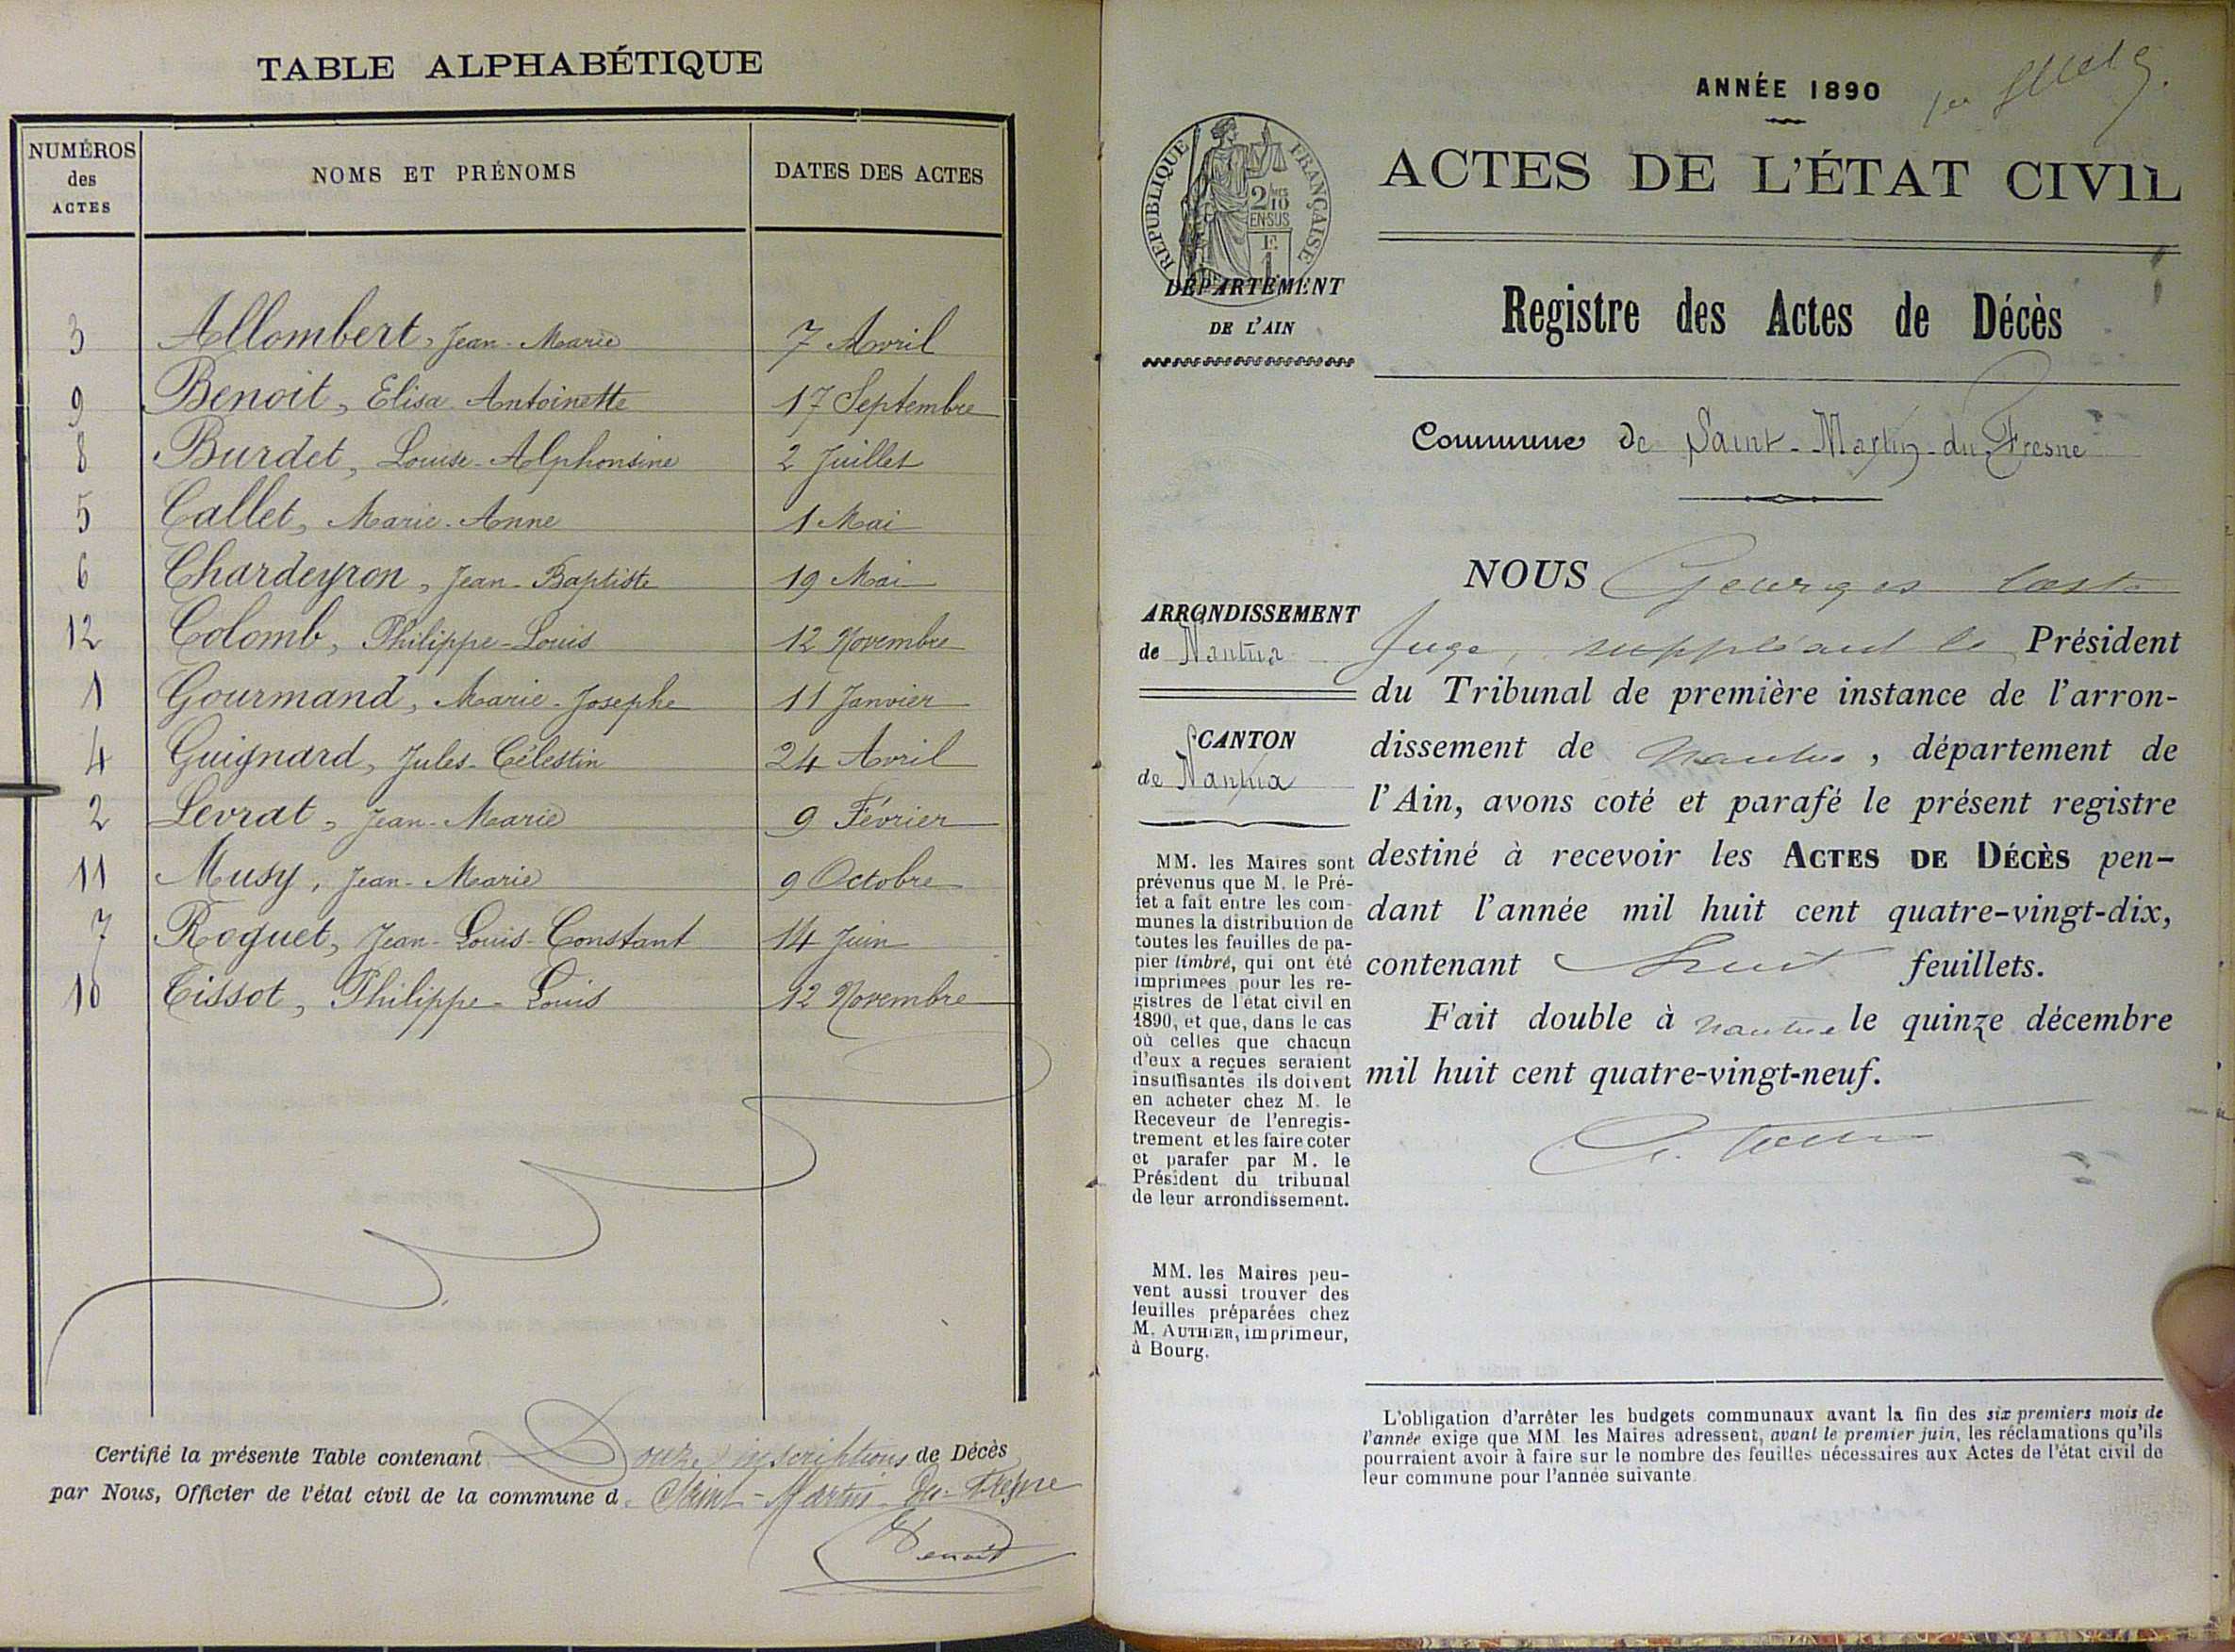 TABLE ALPHABÉTIQUE
NUMÉROS des ACTES NOMS ET PRÉNOMS DATES DES ACTES
3 Allombert, Jean-Marie 7 Avril
9 Benoit, Elisa Antoinette 17 Septembre
8 Burdet, Louise-Alphonsine 2 Juillet
5 Callet, Marie-Anne 1 Mai
6 Chardeyron, Jean-Baptiste 19 Mai
12 Colomb, Philippe-Louis 12 Novembre
1 Gourmand, Marie-Josephe 11 Janvier
4 Guignard, Jules-Célestin 24 Avril
2 Levrat, Jean-Marie 9 Février
11 Musy, Jean-Marie 9 Octobre
7 Roguet, Jean-Louis-Constant 14 Juin
10 Tissot, Philippe-Louis 12 Novembre
Certifié la présente Table contenant Douze inscriptions de Décès
par Nous, Officier de l'état civil de la commune d. Saint-Martin-Du-Fresne
Benoit
ANNÉE 1890
ACTES DE L'ÉTAT CIVIL
RÉPUBLIQUE FRANÇAISE
2/10
EN SUS
F.
1
DÉPARTEMENT
DE L'AIN
Registre des Actes de Décès
Commune de Saint-Martin-du-Fresne
ARRONDISSEMENT
de Nantua
CANTON
de Nantua
MM. les Maires sont
prévenus que M. le Pré-
fet a fait entre les com-
munes la distribution de
toutes les feuilles de pa-
pier timbré, qui ont été
imprimées pour les re-
gistres de l'état civil en
1890, et que, dans le cas
où celles que chacun
d'eux a reçues seraient
insuffisantes ils doivent
en acheter chez M. le
Receveur de l'enregis-
trement et les faire coter
et parafer par M. le
Président du tribunal
de leur arrondissement.
MM. les Maires peu-
vent aussi trouver des
feuilles préparées chez
M. AUTHIER, imprimeur,
à Bourg.
NOUS Georges
Juge, suppléant le Président
du Tribunal de première instance de l'arron-
dissement de Nantua, département de
l'Ain, avons coté et parafé le présent registre
destiné à recevoir les ACTES DE DÉCÈS pen-
dant l'année mil huit cent quatre-vingt-dix,
contenant huit feuillets.
Fait double à Nantua le quinze décembre
mil huit cent quatre-vingt-neuf.
L'obligation d'arrêter les budgets communaux avant la fin des six premiers mois de
l'année exige que MM. les Maires adressent, avant le premier juin, les réclamations qu'ils
pourraient avoir à faire sur le nombre des feuilles nécessaires aux Actes de l'état civil de
leur commune pour l'année suivante.